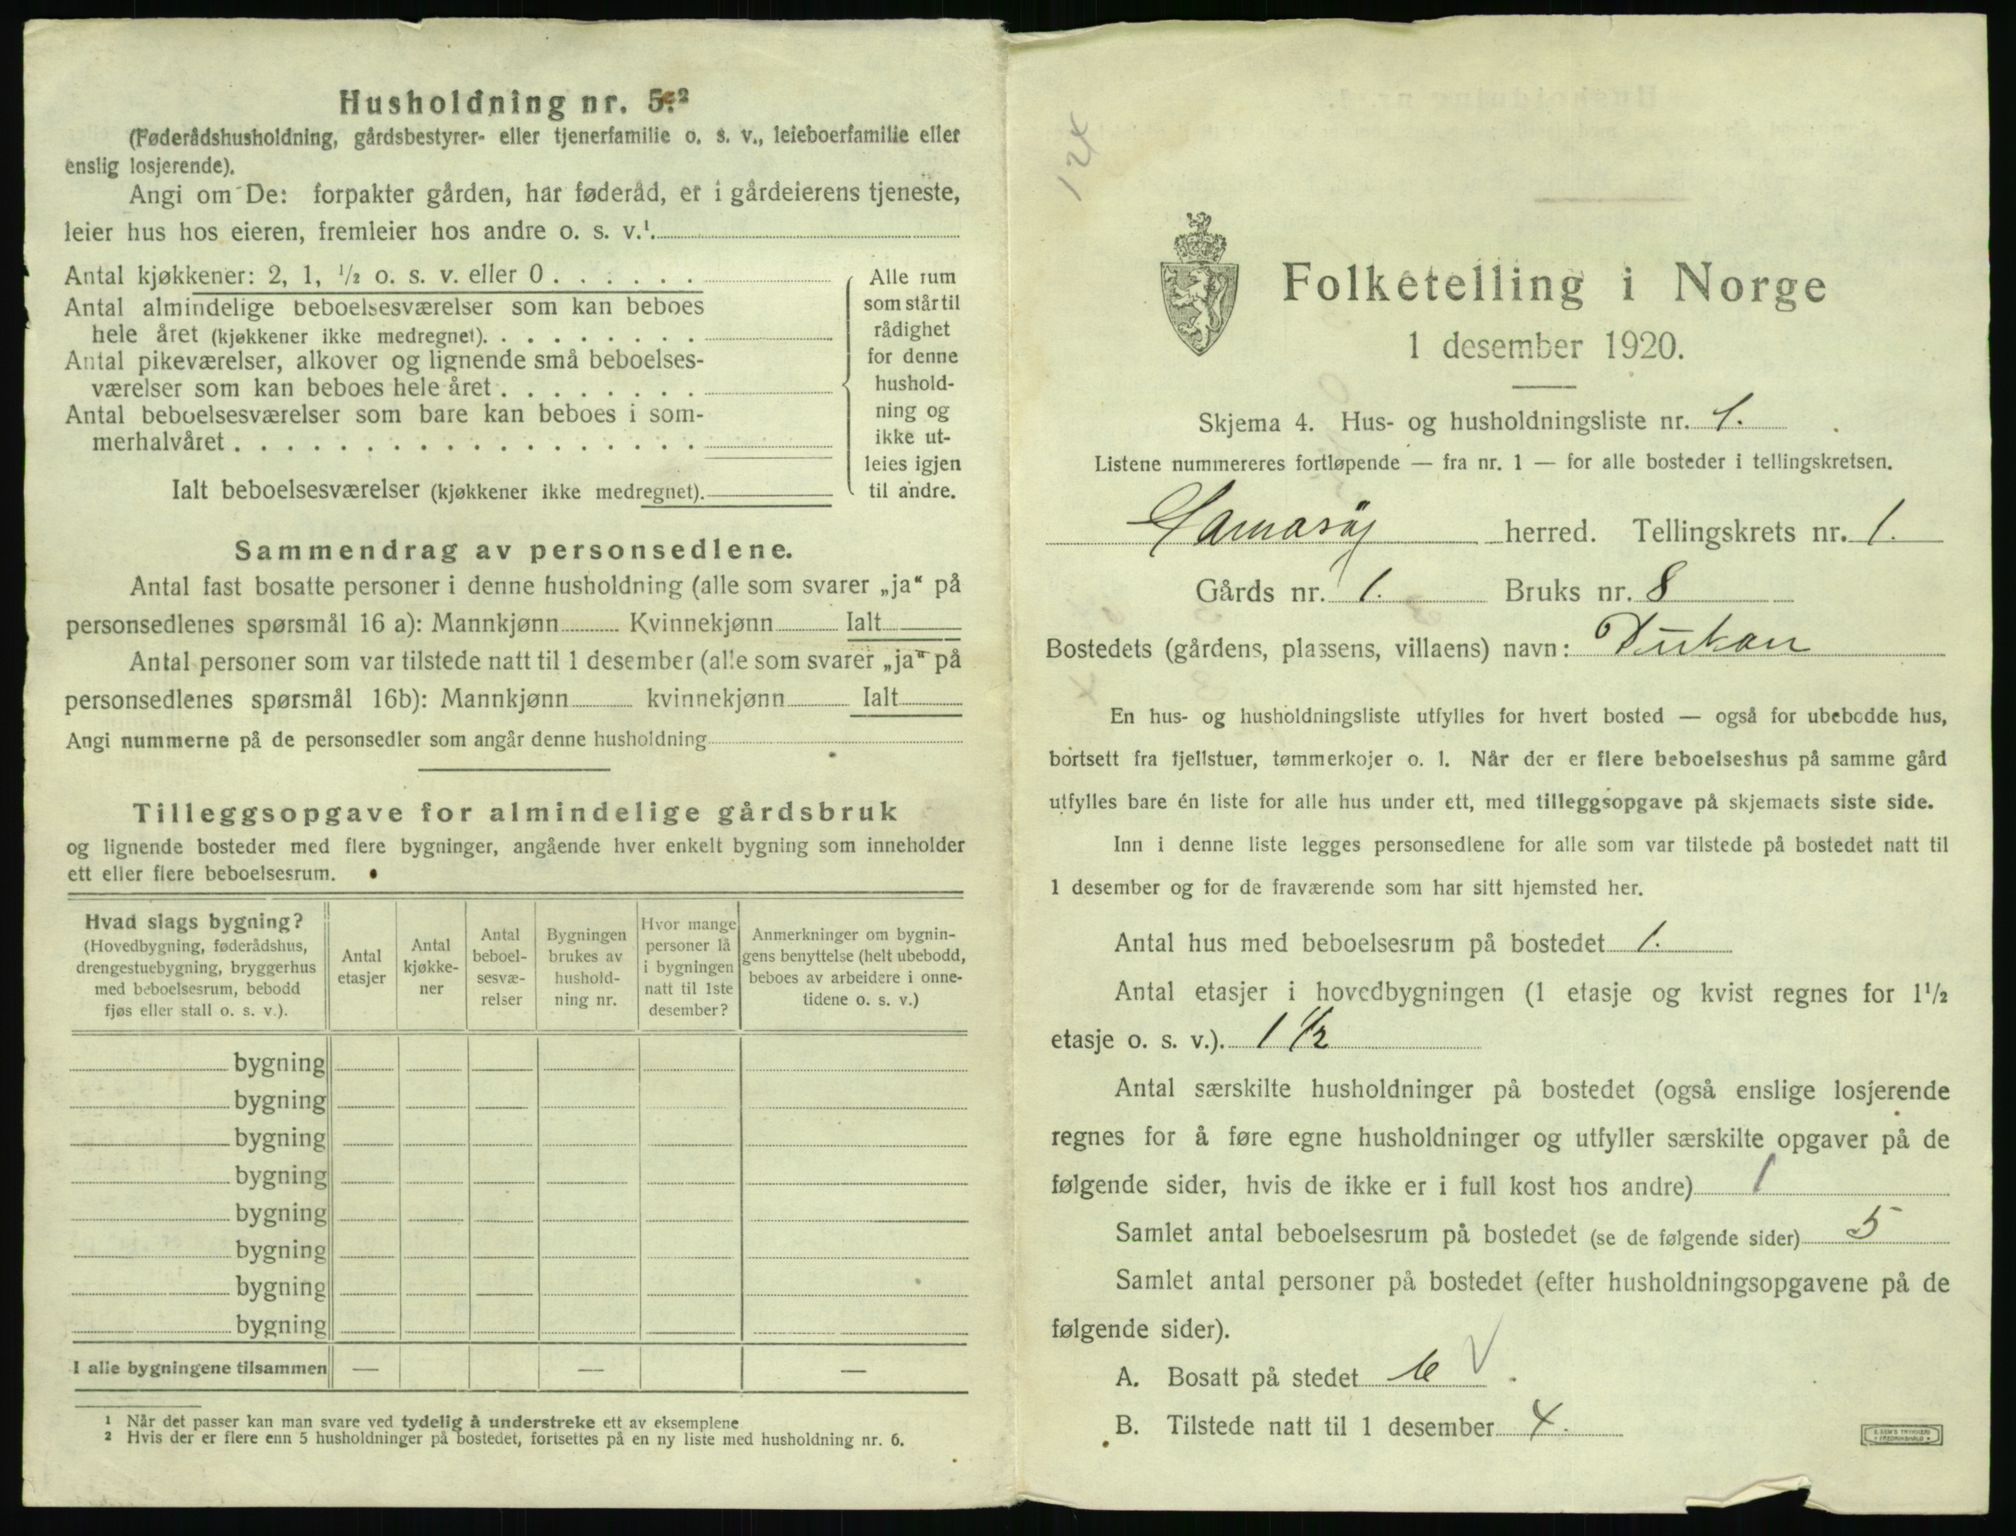 Husholdning nr. 5.²
(Føderådshusholdning, gårdsbestyrer- eller tjenerfamilie o. s. v., leieboerfamilie eller
enslig losjerende).
Angi om De: forpakter gården, har føderåd, er i gårdeierens tjeneste,
leier hus hos eieren, fremleier hos andre o. s. v.¹.
Antal kjøkkener: 2, 1, ½ o. s. v. eller 0
Antal almindelige beboelsesværelser som kan beboes
hele året (kjøkkener ikke medregnet).
Antal pikeværelser, alkover og lignende små beboelses-
værelser som kan beboes hele året
Antal beboelsesværelser som bare kan beboes i som-
merhalvåret
Ialt beboelsesværelser (kjøkkener ikke medregnet).
Alle rum
som står til
rådighet
for denne
hushold-
ning og
ikke ut-
leies igjen
til andre.
Sammendrag av personsedlene.
Antal fast bosatte personer i denne husholdning (alle som svarer „ja“ på
personsedlenes spørsmål 16 a): Mannkjønn Kvinnekjønn Ialt
Antal personer som var tilstede natt til 1 desember (alle som svarer „ja“ på
personsedlenes spørsmål 16b): Mannkjønn kvinnekjønn Ialt
Angi nummerne på de personsedler som angår denne husholdning
Tilleggsopgave for almindelige gårdsbruk
og lignende bosteder med flere bygninger, angående hver enkelt bygning som inneholder
ett eller flere beboelsesrum.
Hvad slags bygning?
(Hovedbygning, føderådshus,
drengestuebygning, bryggerhus
med beboelsesrum, bebodd
fjøs eller stall o. s. v.).
Antal
etasjer
Antal
kjøkke-
ner
Antal
beboel-
sesvæ-
relser
Bygningen
brukes av
hushold-
ning nr.
Hvor mange
personer lå
i bygningen
natt til 1ste
desember?
Anmerkninger om bygnin-
gens benyttelse (helt ubebodd,
beboes av arbeidere i onne-
tidene o. s. v.)
bygning
bygning
bygning
bygning
bygning
bygning
bygning
bygning
I alle bygningene tilsammen — — —
1 Når det passer kan man svare ved tydelig å understreke ett av eksemplene
2 Hvis der er flere enn 5 husholdninger på bostedet, fortsettes på en ny liste med husholdning nr. 6.
Folketelling i Norge
1 desember 1920.
Skjema 4. Hus- og husholdningsliste nr. 1.
Listene nummereres fortløpende — fra nr. 1 — for alle bosteder i tellingskretsen.
herred. Tellingskrets nr. 1.
Gårds nr. 1. Bruks nr. 8
Bostedets (gårdens, plassens, villaens) navn:
En hus- og husholdningsliste utfylles for hvert bosted — også for ubebodde hus,
bortsett fra fjellstuer, tømmerkojer o. l. Når der er flere beboelseshus på samme gård
utfylles bare én liste for alle hus under ett, med tilleggsopgave på skjemaets siste side.
Inn i denne liste legges personsedlene for alle som var tilstede på bostedet natt til
1 desember og for de fraværende som har sitt hjemsted her.
Antal hus med beboelsesrum på bostedet 1.
Antal etasjer i hovedbygningen (1 etasje og kvist regnes for 1½
etasje o. s. v.). 1 ½
Antal særskilte husholdninger på bostedet (også enslige losjerende
regnes for å føre egne husholdninger og utfyller særskilte opgaver på de
følgende sider, hvis de ikke er i full kost hos andre) 1
Samlet antal beboelsesrum på bostedet (se de følgende sider) 5
Samlet antal personer på bostedet (efter husholdningsopgavene på de
følgende sider).
A. Bosatt på stedet 6
B. Tilstede natt til 1 desember 4.